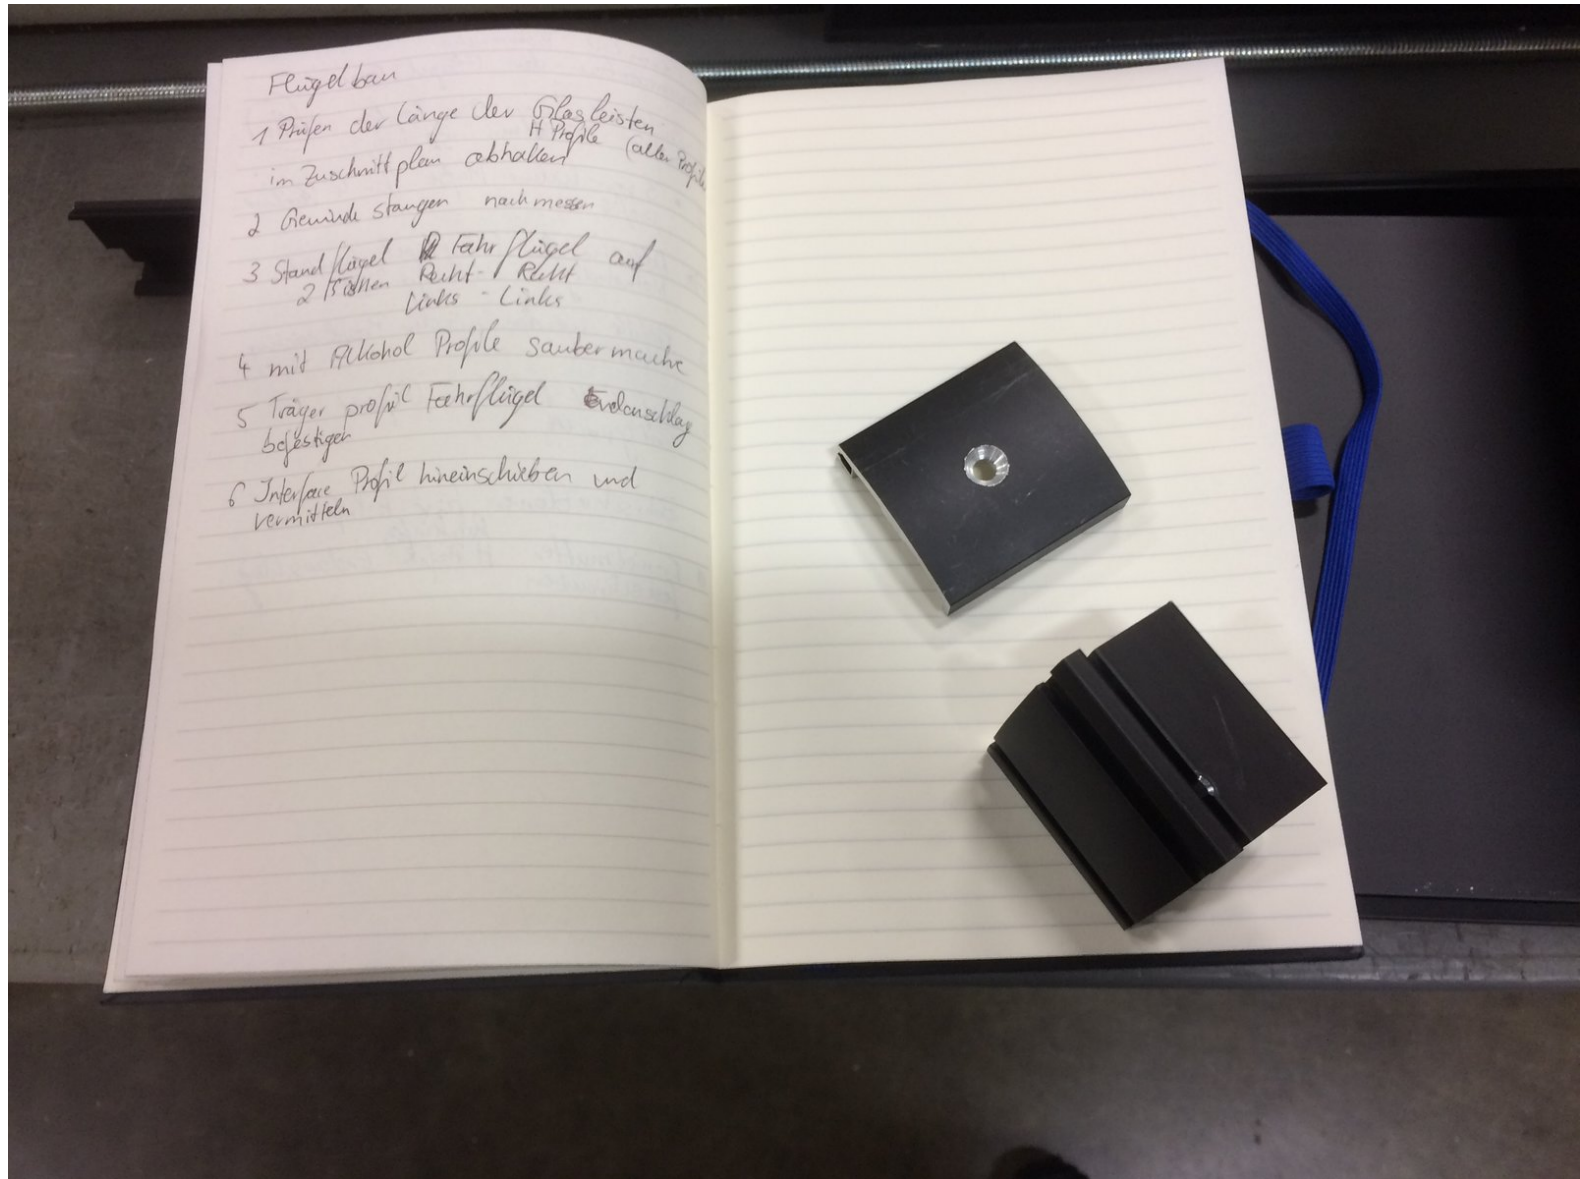 Flügelbau
1 Prüfen der Länge der Glasleisten
H Profile (aller Profile
im Zuschnittplan abhaken
2 Gewinde stangen nachmessen
3 Standflügel Fahrflügel auf
2 Tischen Recht - Recht
Links - Links
4 mit Alkohol Profile saubermache
5 Träger profil Fahrflügel Endanschlag
befestigen
6 Interface Profil hineinschieben und
vermitteln